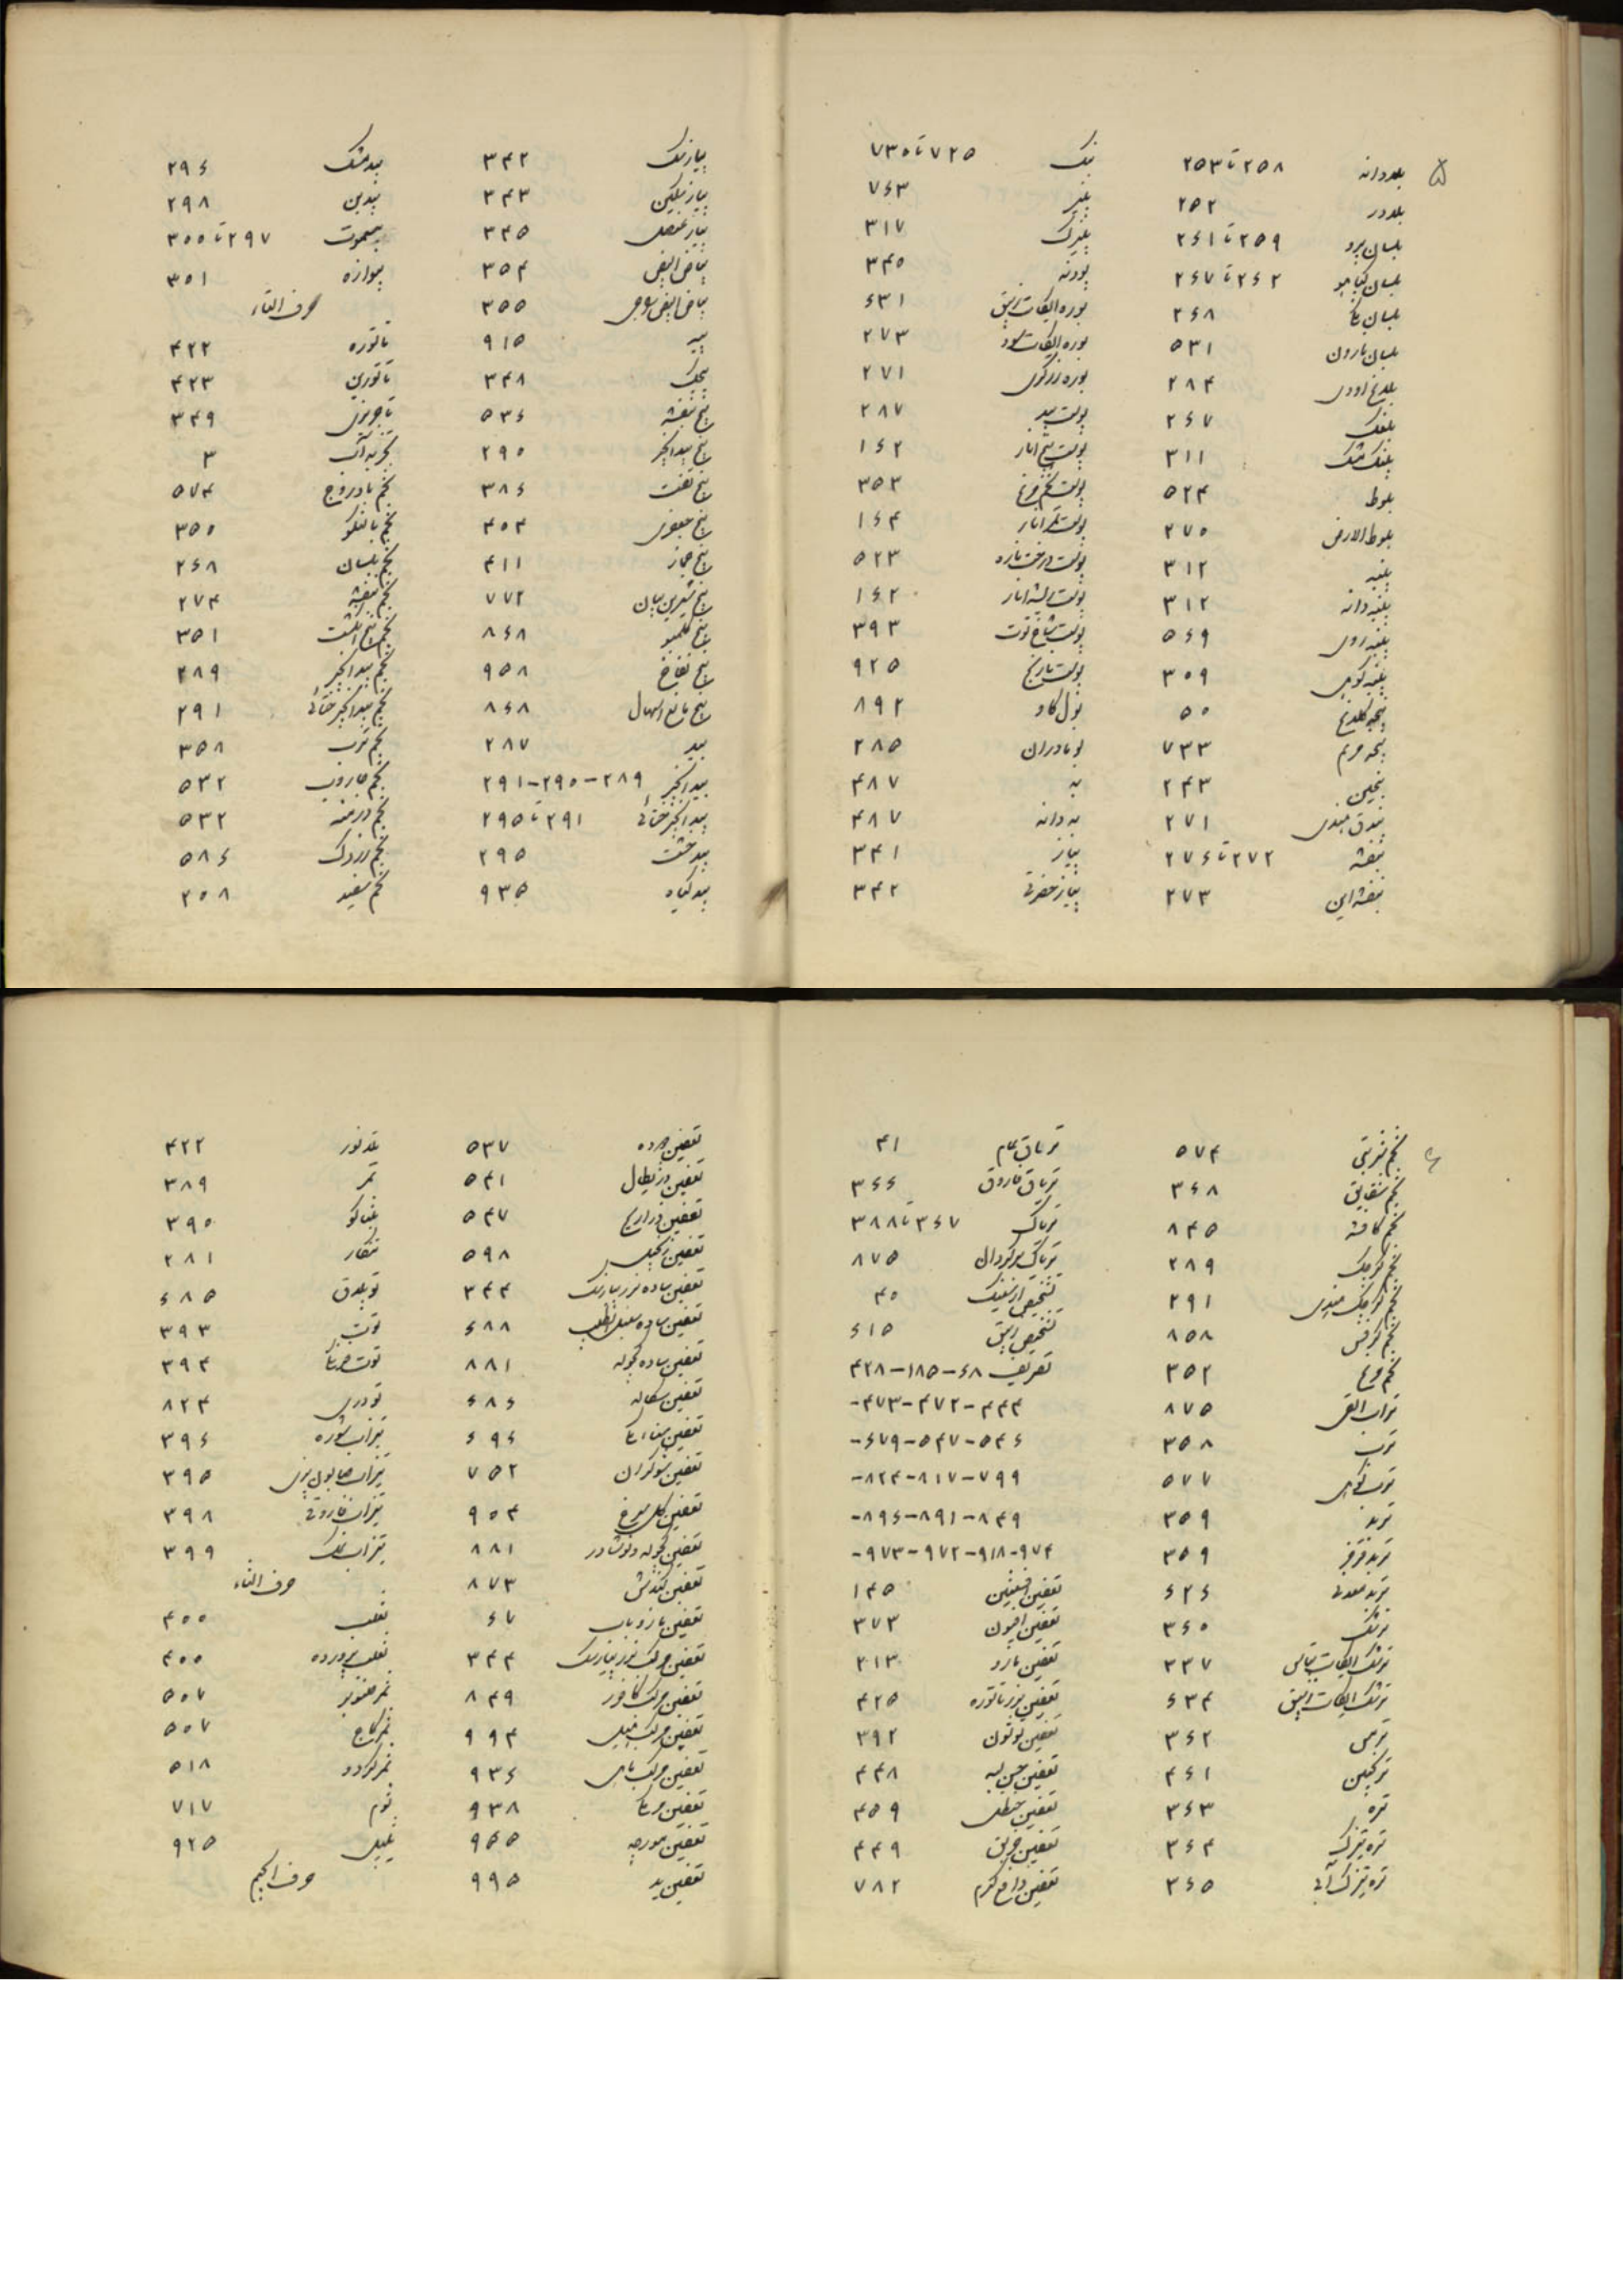 ۵
بلادانه ۲۵۳ تا ۲۵۸
بلادر ۲۵۲
بلسان پرو ۲۵۹ تا ۲۶۱
بلسان کپاهیو ۲۶۲ تا ۲۶۷
بلسان ۲۶۸
بلسان نارون ۵۳۱
۲۸۴
بلغک ۲۶۷
پلنگ مشک ۳۱۱
بلوط ۵۲۴
بلوط الارض ۲۷۰
پنبه ۳۱۲
پنبه دانه ۳۱۲
پنبه رومی ۵۶۹
پنبه کوهی ۳۰۹
پنجه کلاغ ۵۰
پنجه مریم ۷۳۳
۲۴۳
بندق هندی ۲۷۱
بنفشه ۲۷۲ تا ۲۷۶
۲۷۳
بنگ ۷۲۵ تا ۷۳۰
پنیر ۷۶۳
پنیرک ۳۱۷
پودنه ۳۴۰
۶۳۱
۲۷۳
بوره زرگری ۲۷۱
پوست بید ۲۸۷
پوست بیخ انار ۱۶۲
۳۵۳
پوست ثمر انار ۱۶۴
پوست درخت نارون ۵۲۳
پوست ریشه انار ۱۶۲
پوست شاخ توت ۳۹۳
پوست نارنج ۹۲۵
بول گاو ۸۹۲
بومادران ۲۸۵
به ۴۸۷
به دانه ۴۸۷
پیاز ۳۴۱
پیاز حضرتی ۳۴۲
پیازنگ ۳۴۲
۳۴۳
پیاز عنصل ۳۴۵
بیاض البیض ۳۵۴
۳۵۵
پیه ۹۱۵
پیچک ۳۴۸
بیخ بنفشه ۵۳۶
بیخ بیدانجیر ۲۹۰
بیخ تفت ۳۸۶
بیخ جعفری ۴۰۴
بیخ جماز ۴۱۱
بیخ شیرین بیان ۷۷۲
بیخ کلمبو ۸۶۸
بیخ نفاخ ۹۰۸
بیخ مانع اسهال ۸۶۸
بید ۲۸۷
بید انجیر ۲۸۹-۲۹۰-۲۹۱
بید انجیر ختائی ۲۹۱ تا ۲۹۵
بیدخشت ۲۹۵
بید گیاه ۹۳۵
بیدمشک ۲۹۶
۲۹۸
بیسموت ۲۹۷ تا ۳۰۰
۳۰۱
حرف التاء
تاتوره ۴۲۲
تاتورین ۴۲۳
تاجریزی ۳۴۹
تجزیه آب ۳
تخم بادروج ۵۷۴
تخم بالنگو ۳۵۰
تخم بلسان ۲۶۸
تخم بنفشه ۲۷۴
تخم پنج انگشت ۳۵۱
تخم بید انجیر ۲۸۹
تخم بید انجیر ختائی ۲۹۱
تخم ترب ۳۵۸
تخم جاروب ۵۳۲
تخم درمنه ۵۳۲
تخم زردک ۵۸۶
تخم سفید ۲۰۸
۶
تخم شربتی ۵۷۴
تخم شقایق ۳۶۸
تخم کافشه ۸۴۵
تخم کرچک ۲۸۹
تخم کرچک هندی ۲۹۱
تخم کرفس ۸۵۸
تخم مرغ ۳۵۲
تراب القی ۸۷۵
ترب ۳۵۸
ترب کوهی ۵۷۷
تربد ۳۵۹
تربد فرفر ۳۵۹
تربد معدنی ۶۲۶
ترشک ۳۶۰
۳۳۷
۶۳۴
ترمس ۳۶۲
ترنجبین ۴۶۱
تره ۳۶۳
تره تیزک ۳۶۴
تره تیزک آبی ۳۶۵
تریاق عام ۴۱
تریاق فاروق ۳۶۶
تریاک ۳۶۷ تا ۳۸۸
۸۷۵
تشخیص ارسنیک ۴۰
تشخیص زیبق ۶۱۵
تعریف ۶۸-۱۸۵-۴۲۸
۴۴۴-۴۷۲-۴۷۳-
۵۴۶-۵۴۷-۶۷۹-
۷۹۹-۸۱۷-۸۲۴-
۸۴۹-۸۹۱-۸۹۶-
۹۷۴-۹۱۸-۹۷۲-۹۷۳-
تعفین افسنتین ۱۴۵
تعفین افیون ۳۷۳
تعفین بارود ۳۱۳
تعفین بزر تاتوره ۴۲۵
تعفین توتون ۳۹۲
تعفین جوز بویه ۴۴۸
تعفین حنظل ۴۵۹
تعفین خربق ۴۴۹
تعفین دافع کرم ۷۸۲
تعفین ۵۳۷
تعفین دیژیتال ۵۴۱
تعفین ذراریح ۵۴۷
تعفین زنجبیل ۵۹۸
۳۴۴
تعفین ساده سنبل الطیب ۶۸۸
تعفین ساده کچوله ۸۸۱
تعفین سکاله ۶۸۶
تعفین سناء ۶۹۶
تعفین شوکران ۷۵۲
تعفین گل سرخ ۹۰۴
تعفین کچوله و نوشادر ۸۸۱
تعفین کندش ۸۷۳
تعفین مازو ۶۷
۳۴۴
تعفین مرکب کافور ۸۴۹
۹۹۴
۹۳۶
تعفین مر ۹۳۸
تعفین مورچه ۹۵۵
تعفین ید ۹۹۵
۴۲۲
تمر ۳۸۹
تنباکو ۳۹۰
تنکار ۲۸۱
۶۸۵
توت ۳۹۳
توت ۳۹۴
تودری ۸۲۴
تیزاب شوره ۳۹۶
تیزاب صابون پزی ۳۹۵
تیزاب فاروقی ۳۹۸
تیزاب نمک ۳۹۹
حرف الثاء
ثعلب ۴۰۰
ثعلب پرورده ۴۰۰
ثمر صنوبر ۵۰۷
ثمر کاج ۵۰۷
ثمر گردو ۵۱۸
ثوم ۷۱۷
ثیل ۹۲۵
حرف الجیم